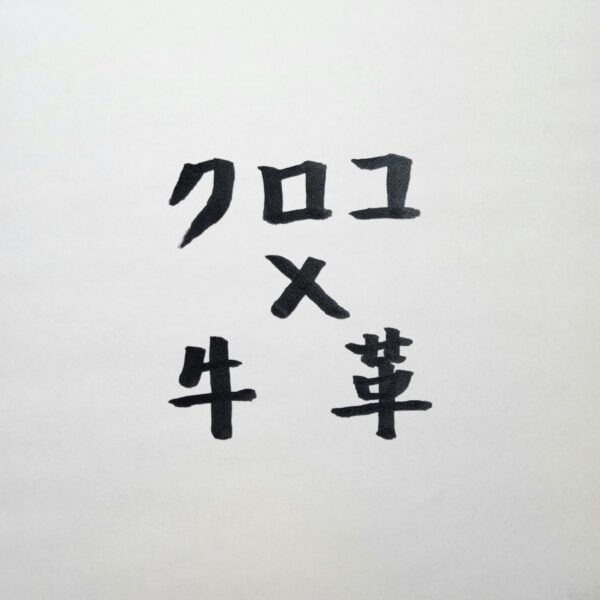 クロコ
×
牛革